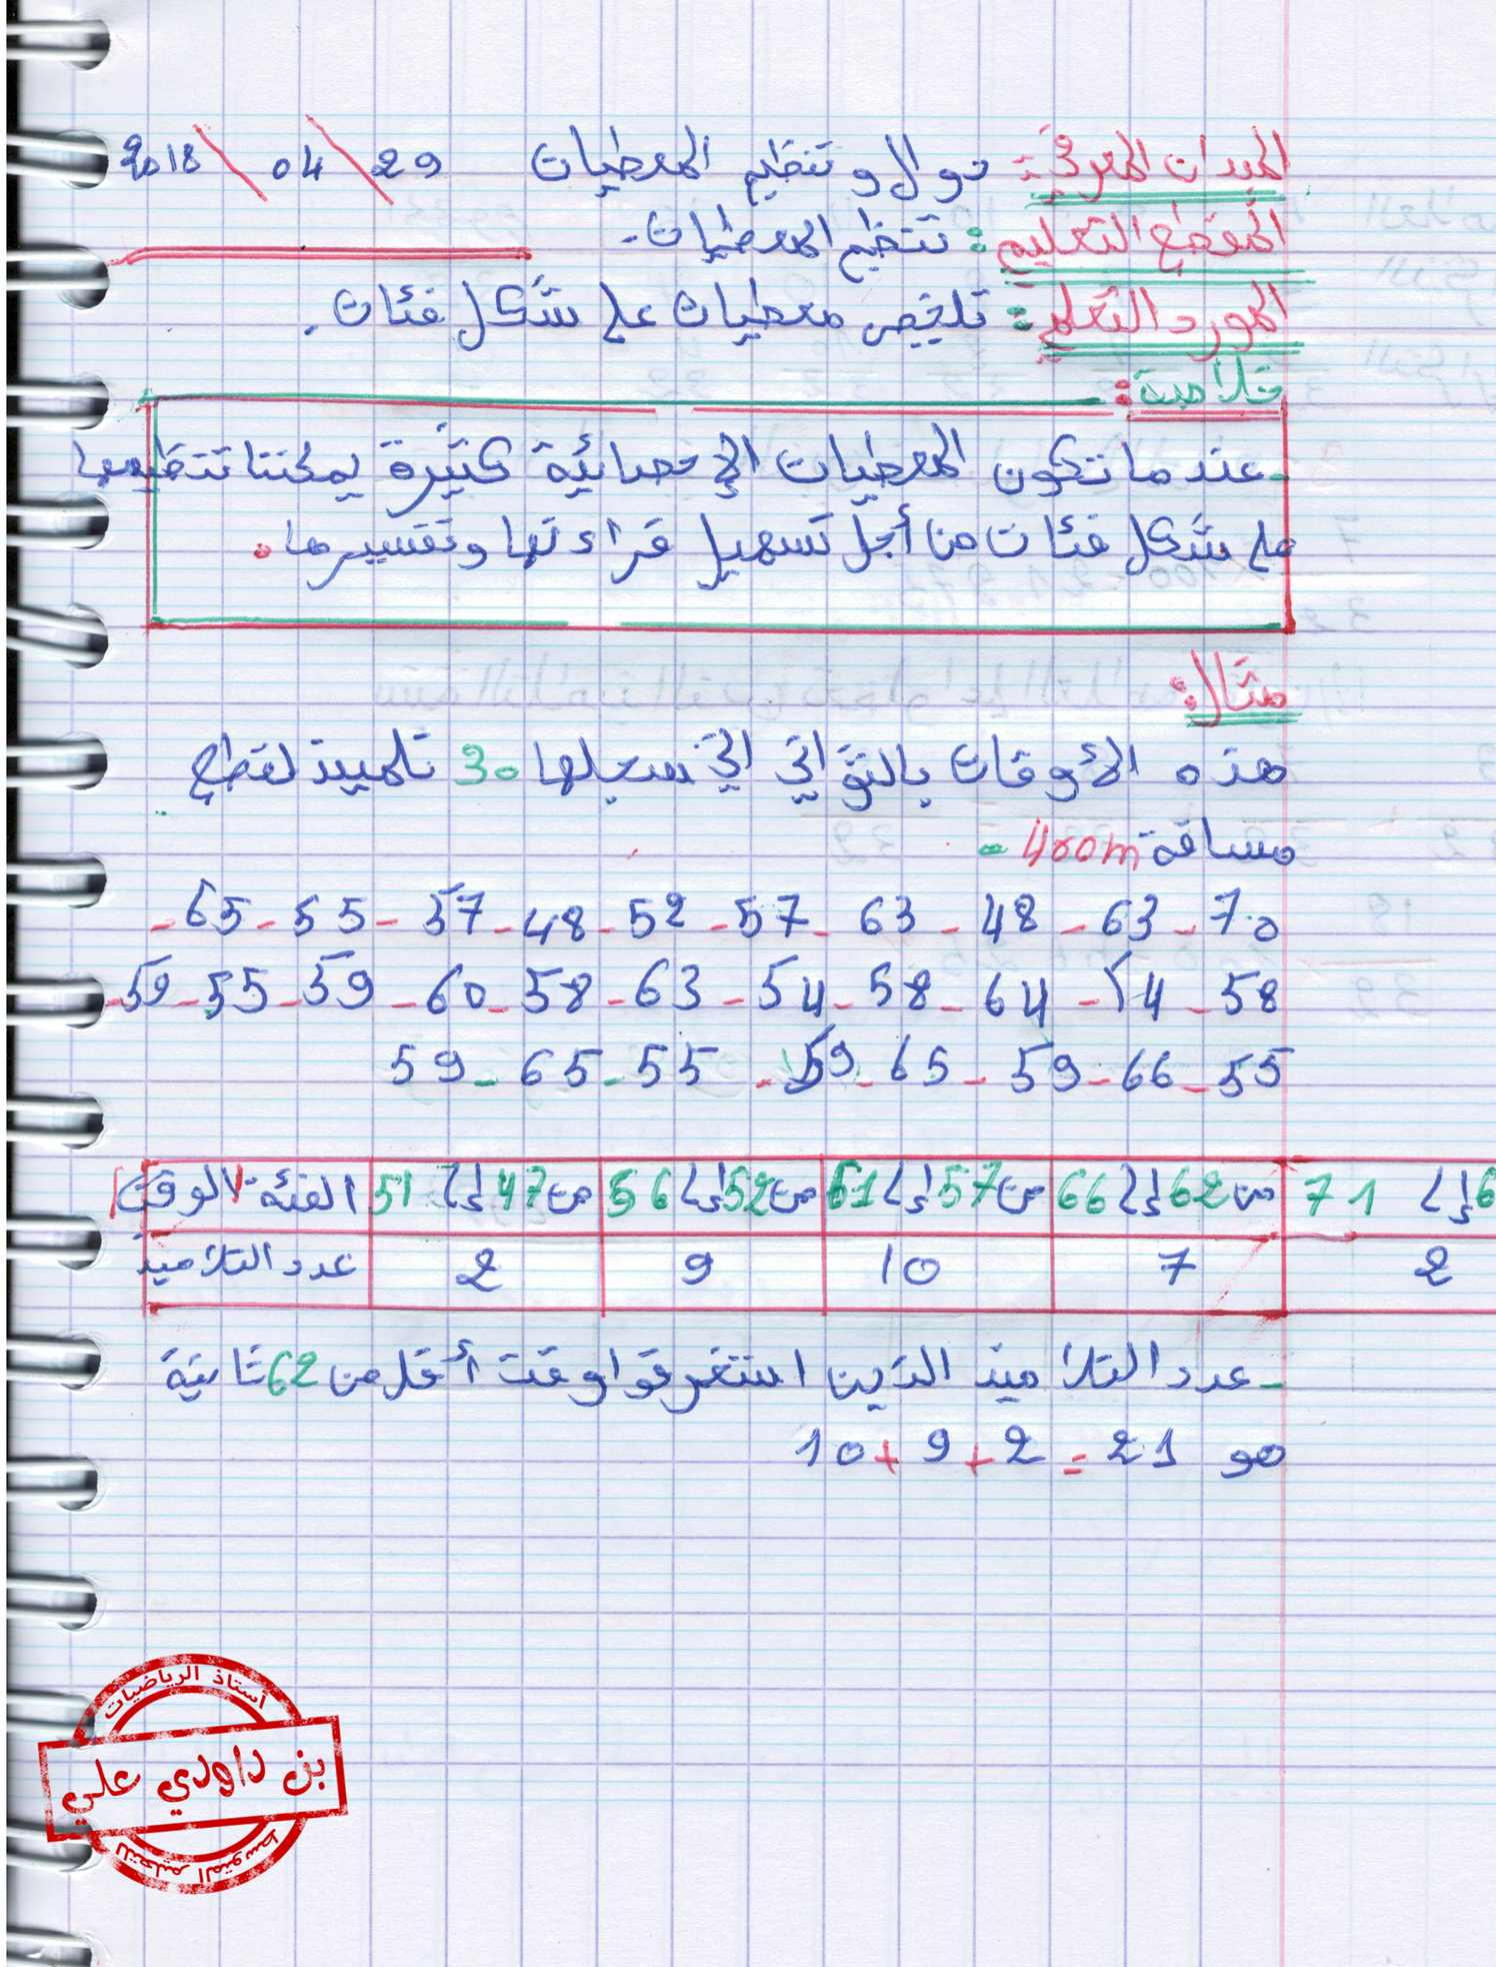 الميدان المعرفي: دوال وتنظيم المعطيات 29 / 04 / 2018
المقطع التعليمي: تنظيم المعطيات.
المورد التعلمي: تلخيص معطيات على شكل فئات.
خلاصة:
- عندما تكون المعطيات الإحصائية كثيرة يمكننا تنظيمها
على شكل فئات من أجل تسهيل قراءتها وتفسيرها.
مثال:
هذه الأوقات بالثواني التي سجلها 30 تلميذ لقطع
مسافة 400m
70 - 63 - 48 - 63 - 57 - 52 - 48 - 57 - 55 - 65 -
58 - 54 - 64 - 58 - 54 - 63 - 58 - 60 - 59 - 55 - 59 -
55 - 66 - 59 - 65 - 59 - 55 - 65 - 59
الفئة الوقت من 47 إلى 51 من 52 إلى 56 من 57 إلى 61 من 62 إلى 66 إلى 71
عدد التلاميذ 2 9 10 7 2
- عدد التلاميذ الذين استغرقوا وقت أقل من 62 ثانية
هو 21 = 2 + 9 + 10
أستاذ الرياضيات
بن داودي علي
للتعليم المتوسط